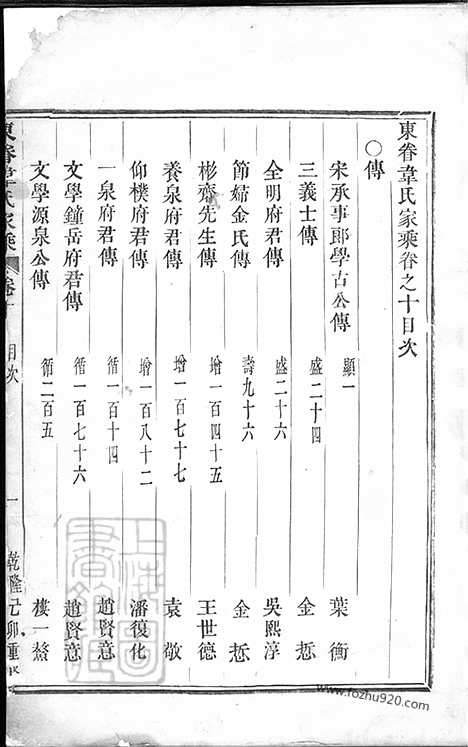 東眷韋氏家乘卷之十目次
○傳
宋承事郎學古公傳 顯一 葉衡
三義士傳 盛二十四 金悊
全明府君傳 盛二十六 吳熙淳
節婦金氏傳 壽九十六 金悊
彬齋先生傳 增一百四十五 王世德
養泉府君傳 增一百七十七 袁敬
仰樸府君傳 增一百八十二 潘復化
一泉府君傳 循一百十四 趙賢意
文學鐘岳府君傳 循一百七十六 趙賢意
文學源泉公傳 循二百五 樓一鰲
東眷韋氏家乘 卷十 目次 一 乾隆己卯重修
上海圖書館藏
www.fozhu920.com